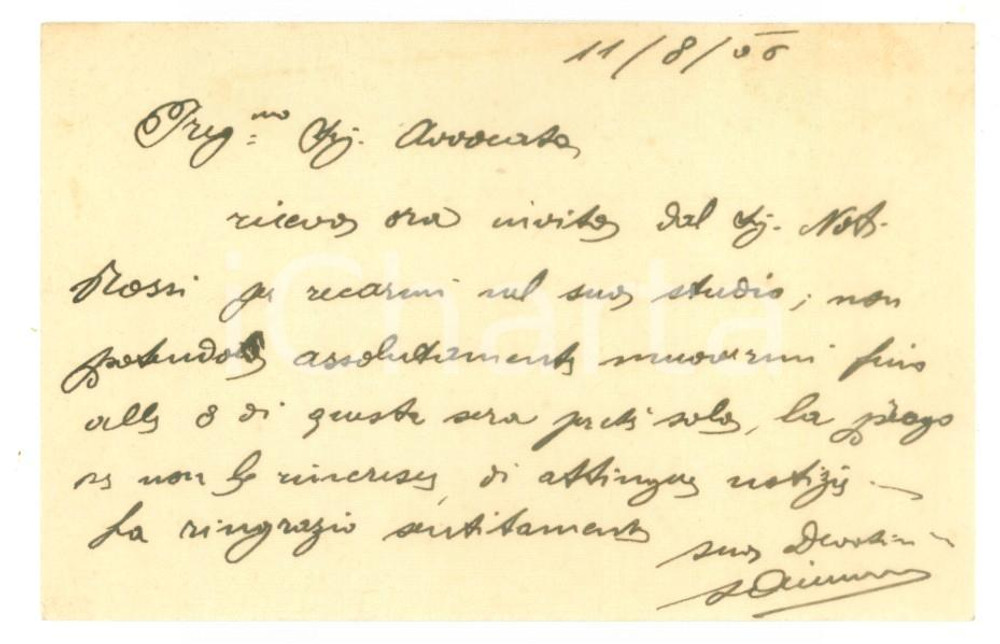 11/8/06
Preg.mo Sig. Avvocato
ricevo ora invito dal Sig. Not.
Rossi per recarmi nel suo studio; non
potendo assolutamente muovermi fino
alle 8 di questa sera perchè solo, la prego
se non le rincresce, di attingere notizie.
La ringrazio sentitamente
suo Devotissimo
iCharta